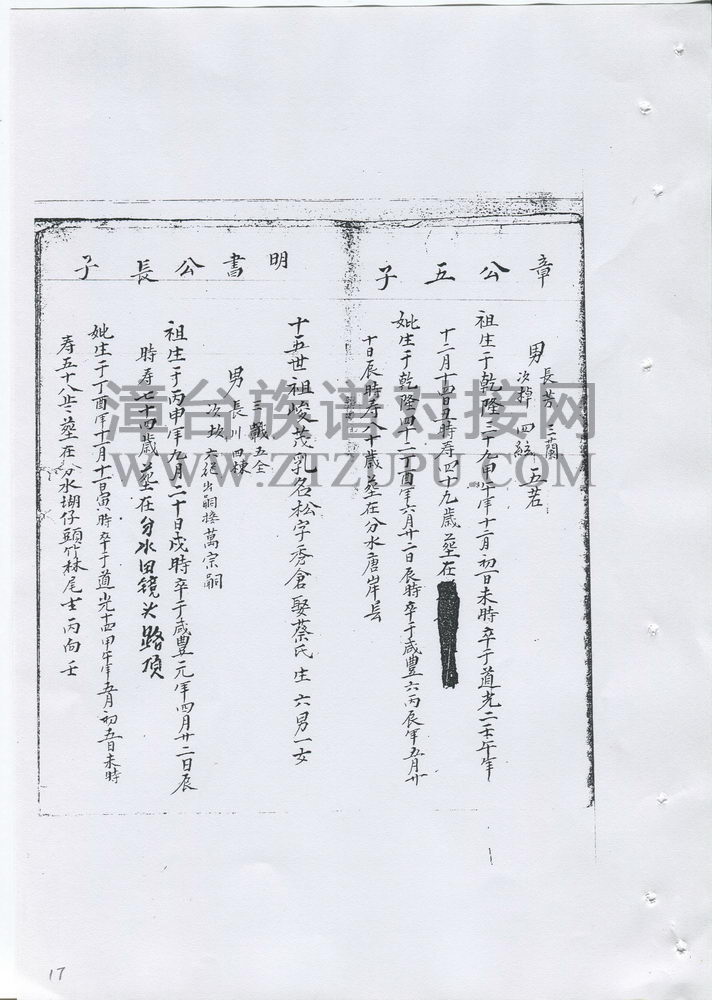 章公五子
男 長芳 三蘭 五若
次梓 四絃
祖生于乾隆三十九甲午年十一月初一日未時卒于道光二壬午年
十二月十四日丑時寿四十九歲墓在
妣生于乾隆四十二丁酉年六月廿二日辰時卒于咸豐六丙辰年五月廿
十日辰時寿八十歲墓在分水唐岸長
明書公長子
十五世祖峻茂乳名松字秀倉娶蔡氏生六男一女
三 五全
男 長川 四棟
次 六 出嗣 萬宗嗣
祖生于丙申年九月二十日戌時卒于咸豐元年四月廿二日辰
時寿七十四歲墓在分水田镜头路頂
妣生于丁酉年十一月十一日寅時卒于道光十四甲午年五月初五日未時
寿五十八歲墓在分水坳仔頭竹林尾 丙向壬
漳台族谱对接网
WWW.ZTZUPU.COM
17